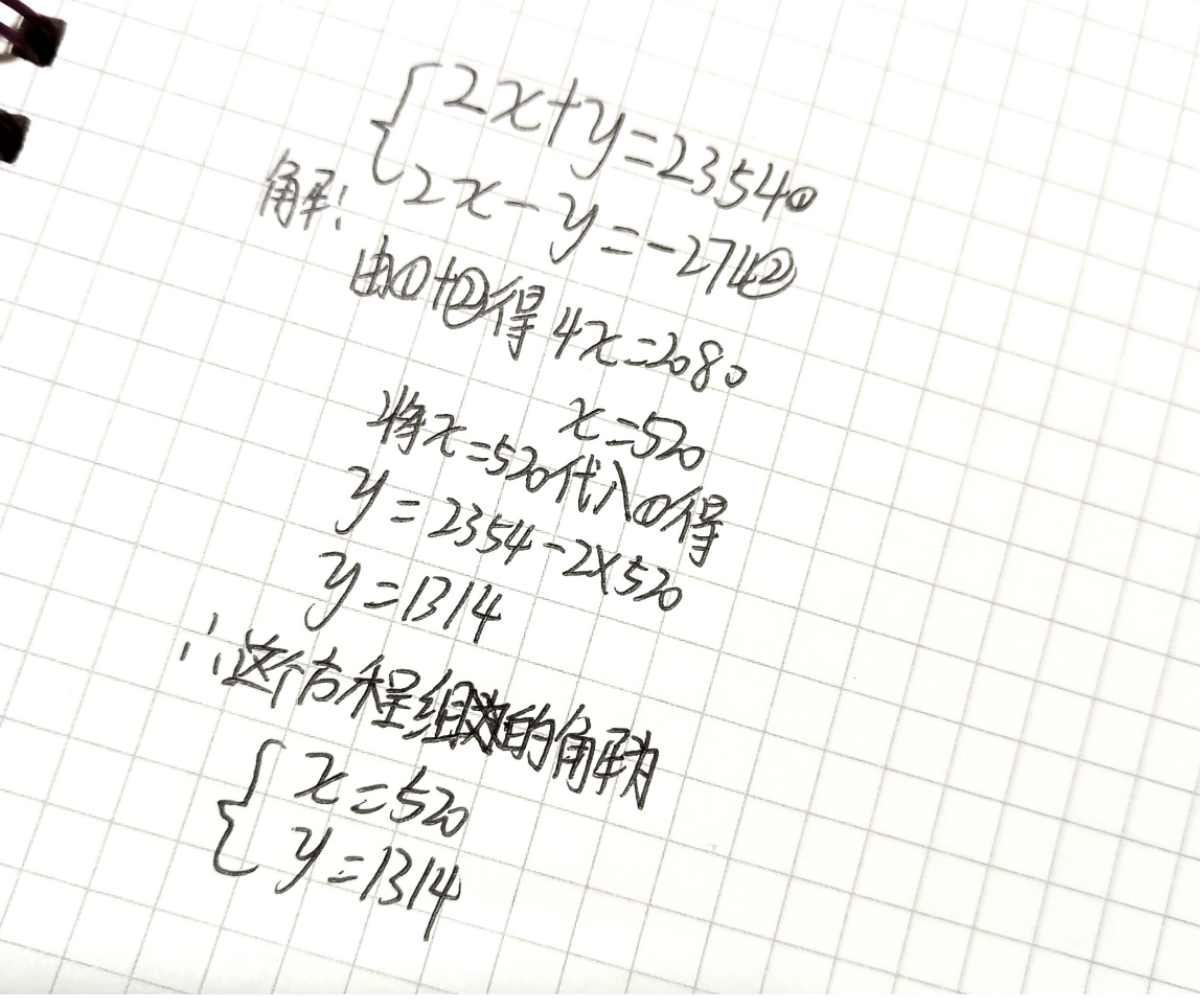 {2x+y=2354①
2x-y=-274②
解:
由①+②得 4x=2080
x=520
将x=520代入①得
y=2354-2×520
y=1314
∴这个方程组的解为
{x=520
y=1314